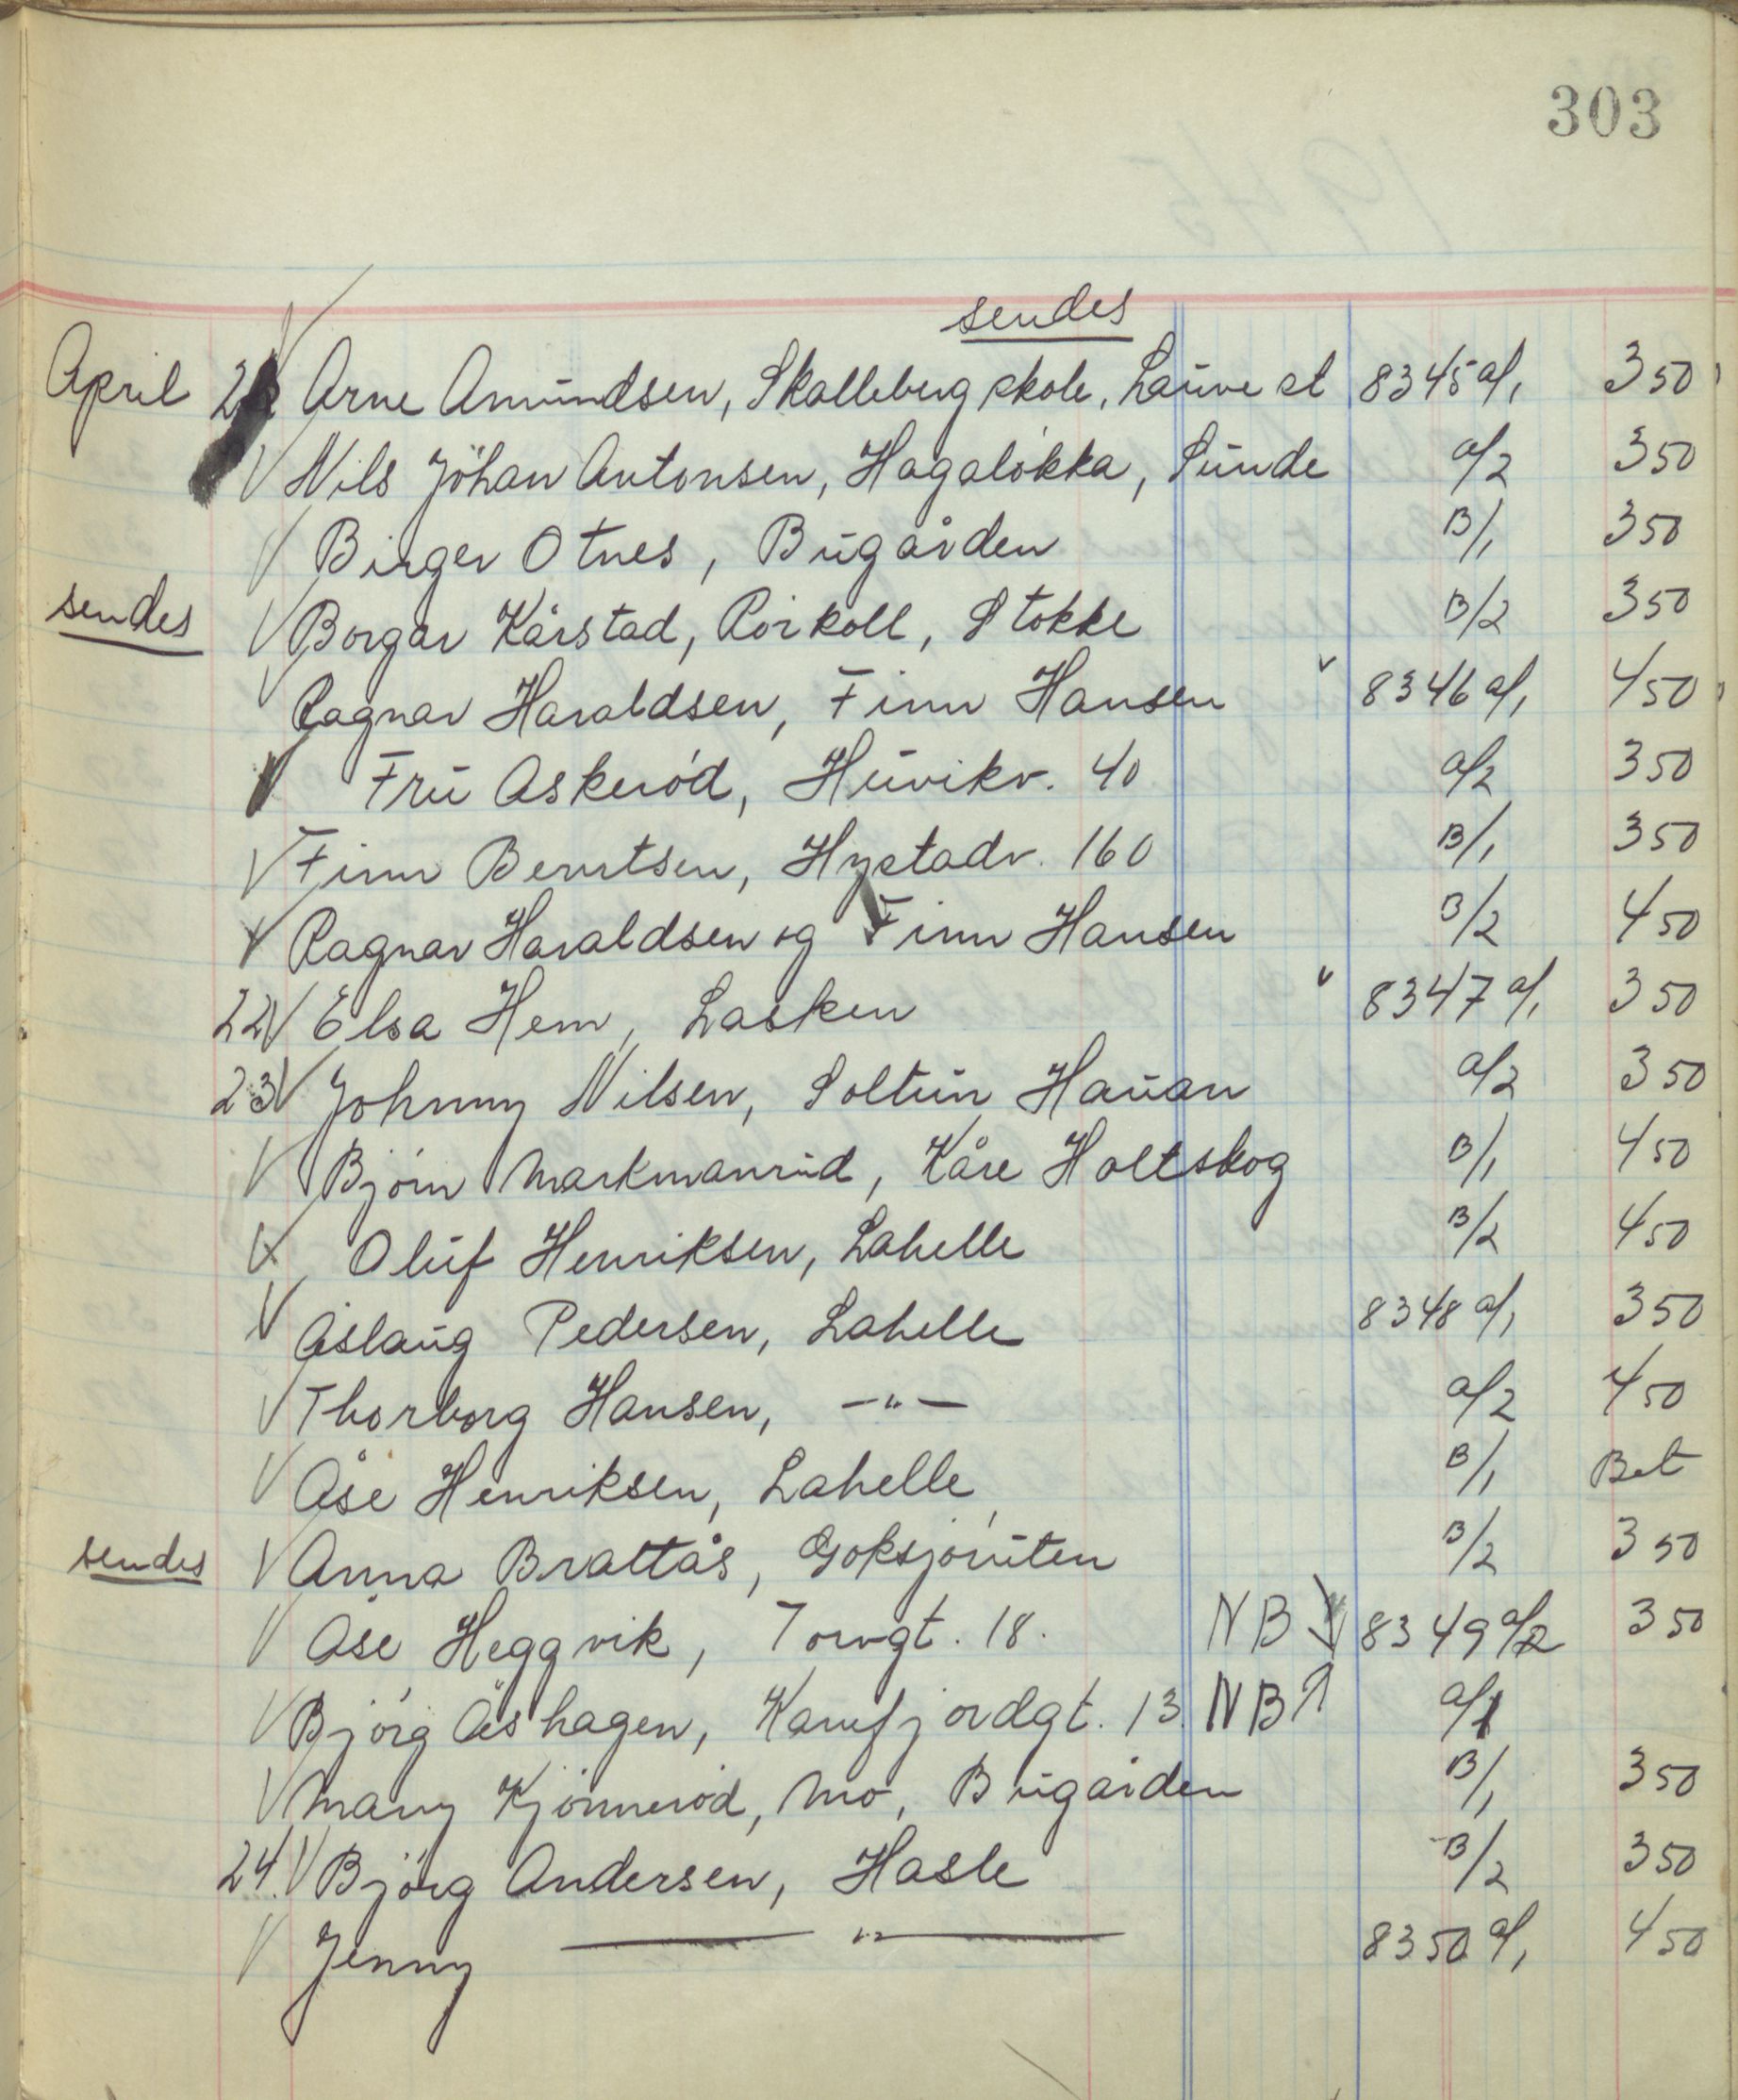 303
sendes
April 2 Arne Amundsen, Skalleberg skole, Lauve st 8345 a/1 3 50
Nils Johan Antonsen, Hagaløkka, Sunde a/2 3 50
Birger Otnes, Bugården B/1 3 50
sendes Borgar Kårstad, Rørkoll, Stokke B/2 3 50
Ragnar Haraldsen, Finn Hansen 8346 a/1 4 50
Fru Askerød, Huvikv. 40 a/2 3 50
Finn Berntsen, Hystadv. 160 B/1 3 50
Ragnar Haraldsen og Finn Hansen B/2 4 50
22 Elsa Hem, Lasken 8347 a/1 3 50
23 Johnny Nilsen, Soltun Hauan a/2 3 50
Bjørn Markmanrud, Kåre Holtskog B/1 4 50
Oluf Henriksen, Lahelle B/2 4 50
Åslaug Pedersen, Lahelle 8348 a/1 3 50
Thorborg Hansen, —"— a/2 4 50
Åse Henriksen, Lahelle B/1 Bet
sendes Anna Brattås, Goksjøruten B/2 3 50
Åse Heggvik, Torvgt. 18. NB 8349 a/2 3 50
Bjørg Åshagen, Kamfjordgt. 13. NB ↑ a/1
Mary Kjønnerød, Mo, Bugården B/1 3 50
24. Bjørg Andersen, Hasle B/2 3 50
Jenny —"— 8350 a/1 4 50